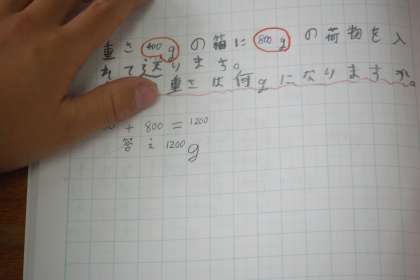 重さ400gの箱に800gの荷物を入
れて送ります。
重さは何gになりますか。
+ 800 = 1200
答え 1200g